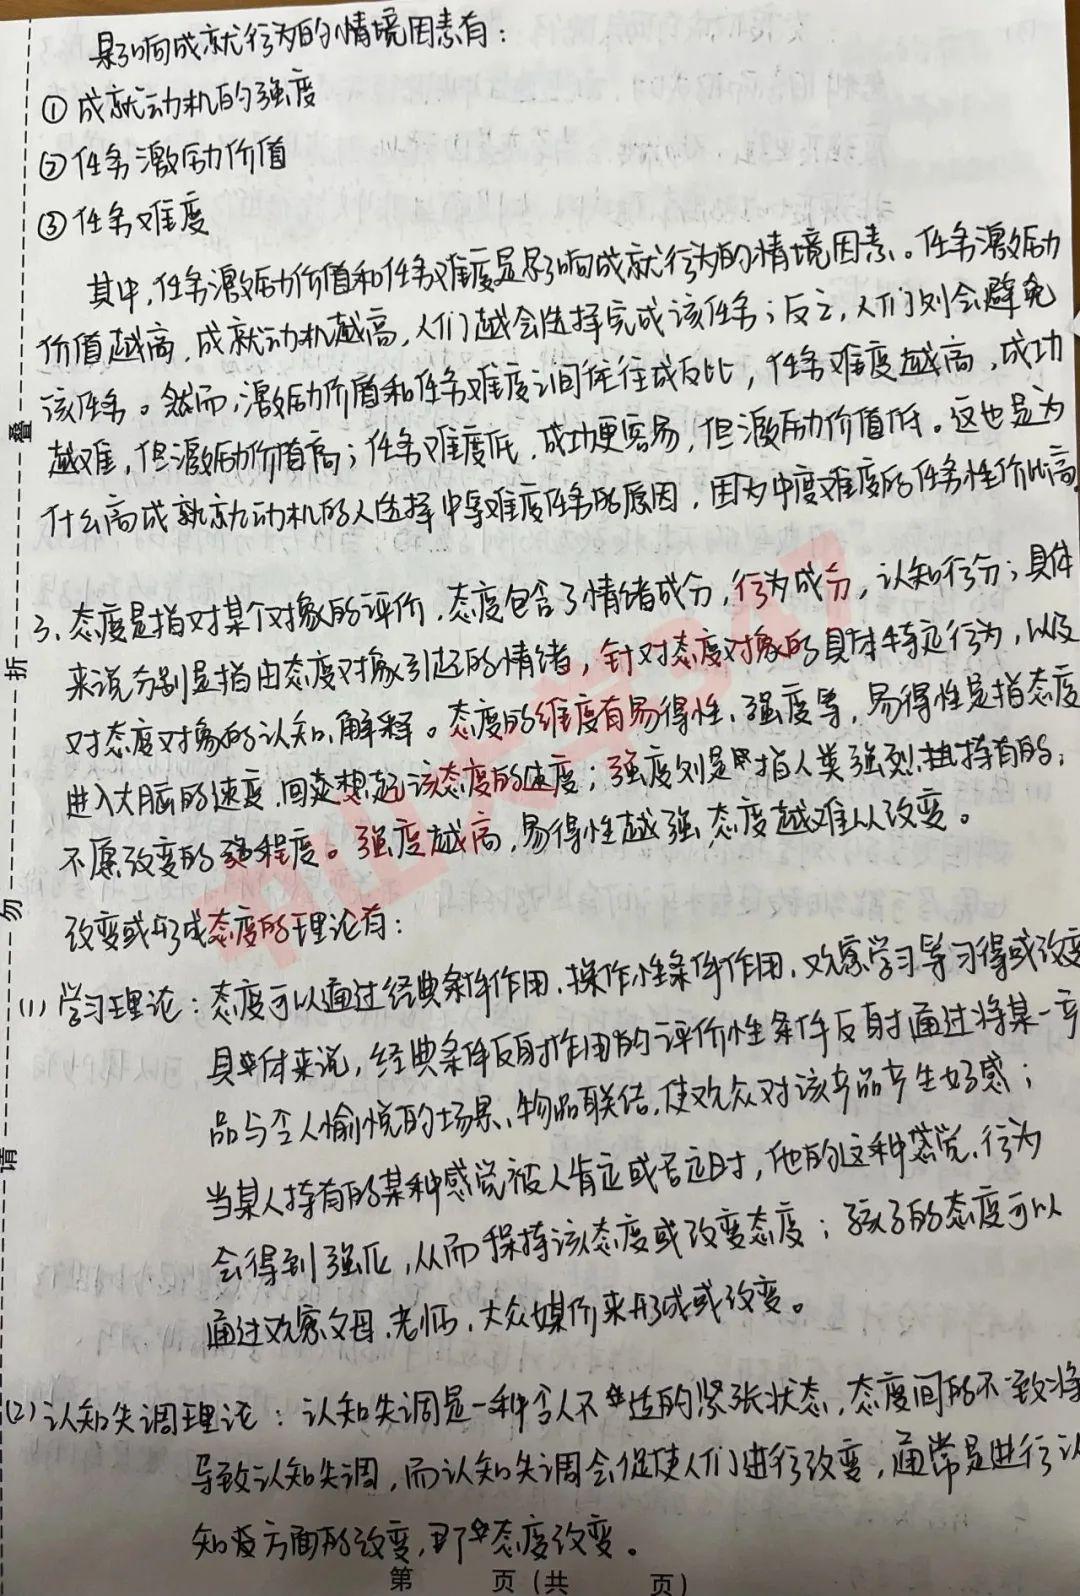 影响成就行为的情境因素有：
① 成就动机的强度
② 任务激励价值
③ 任务难度
其中，任务激励价值和任务难度是影响成就行为的情境因素。任务激励
价值越高，成就动机越高，人们越会选择完成该任务；反之，人们则会避免
该任务。然而，激励价值和任务难度之间往往成反比，任务难度越高，成功
越难，但激励价值高；任务难度低，成功更容易，但激励价值低。这也是为
什么高成就动机的人选择中等难度任务的原因，因为中度难度的任务性价比高。
3、态度是指对某个对象的评价，态度包含了情绪成分，行为成分，认知行分；具体
来说分别是指由态度对象引起的情绪，针对态度对象的具体特定行为，以及
对态度对象的认知、解释。态度的维度有易得性、强度等，易得性是指态度
进入大脑的速度，回想起该态度的速度；强度则是指人类强烈坚持有的，
不愿改变的程度。强度越高，易得性越强，态度越难以改变。
改变或形成态度的理论有：
(1) 学习理论：态度可以通过经典条件作用、操作性条件作用、观察学习等习得或改变
具体来说，经典条件反射作用的评价性条件反射通过将某一产
品与令人愉悦的场景、物品联结，使观众对该产品产生好感；
当某人持有的某种感觉被人肯定或否定时，他的这种感觉、行为
会得到强化，从而保持该态度或改变态度；孩子的态度可以
通过观察父母、老师、大众媒介来形成或改变。
(2) 认知失调理论：认知失调是一种令人不适的紧张状态，态度间的不一致将
导致认知失调，而认知失调会促使人们进行改变，通常是进行认
知方面的改变，即态度改变。
第 页（共 页）
请 勿 折 叠
中山大学347